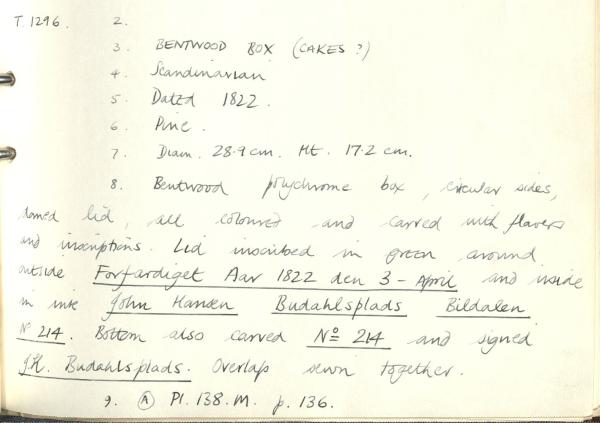 T. 1296. 2.
3. BENTWOOD BOX (CAKES?)
4. Scandinavian
5. Dated 1822.
6. Pine.
7. Diam. 28.9 cm. Ht. 17.2 cm.
8. Bentwood polychrome box, circular sides,
domed lid, all coloured and carved with flowers
and inscriptions. Lid inscribed in green around
outside Forfardiget Aar 1822 den 3 - April and inside
in ink John Hansen Budahlsplads Bildalen
No 214. Bottom also carved No 214 and signed
J.H. Budahlsplads. Overlap sewn together.
9. (A) Pl. 138. M. p. 136.